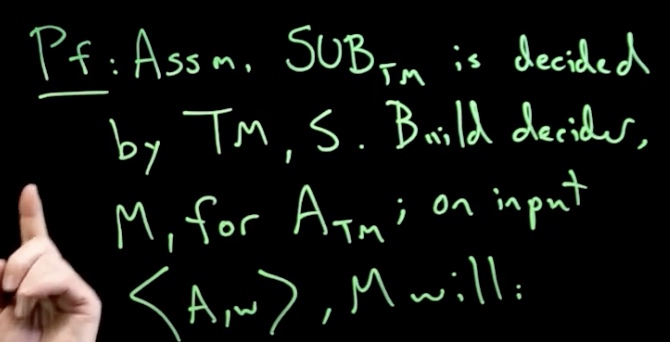 Pf: Assm. SUB_TM is decided
by TM, S. Build decider,
M, for A_TM; on input
<A,w>, M will: